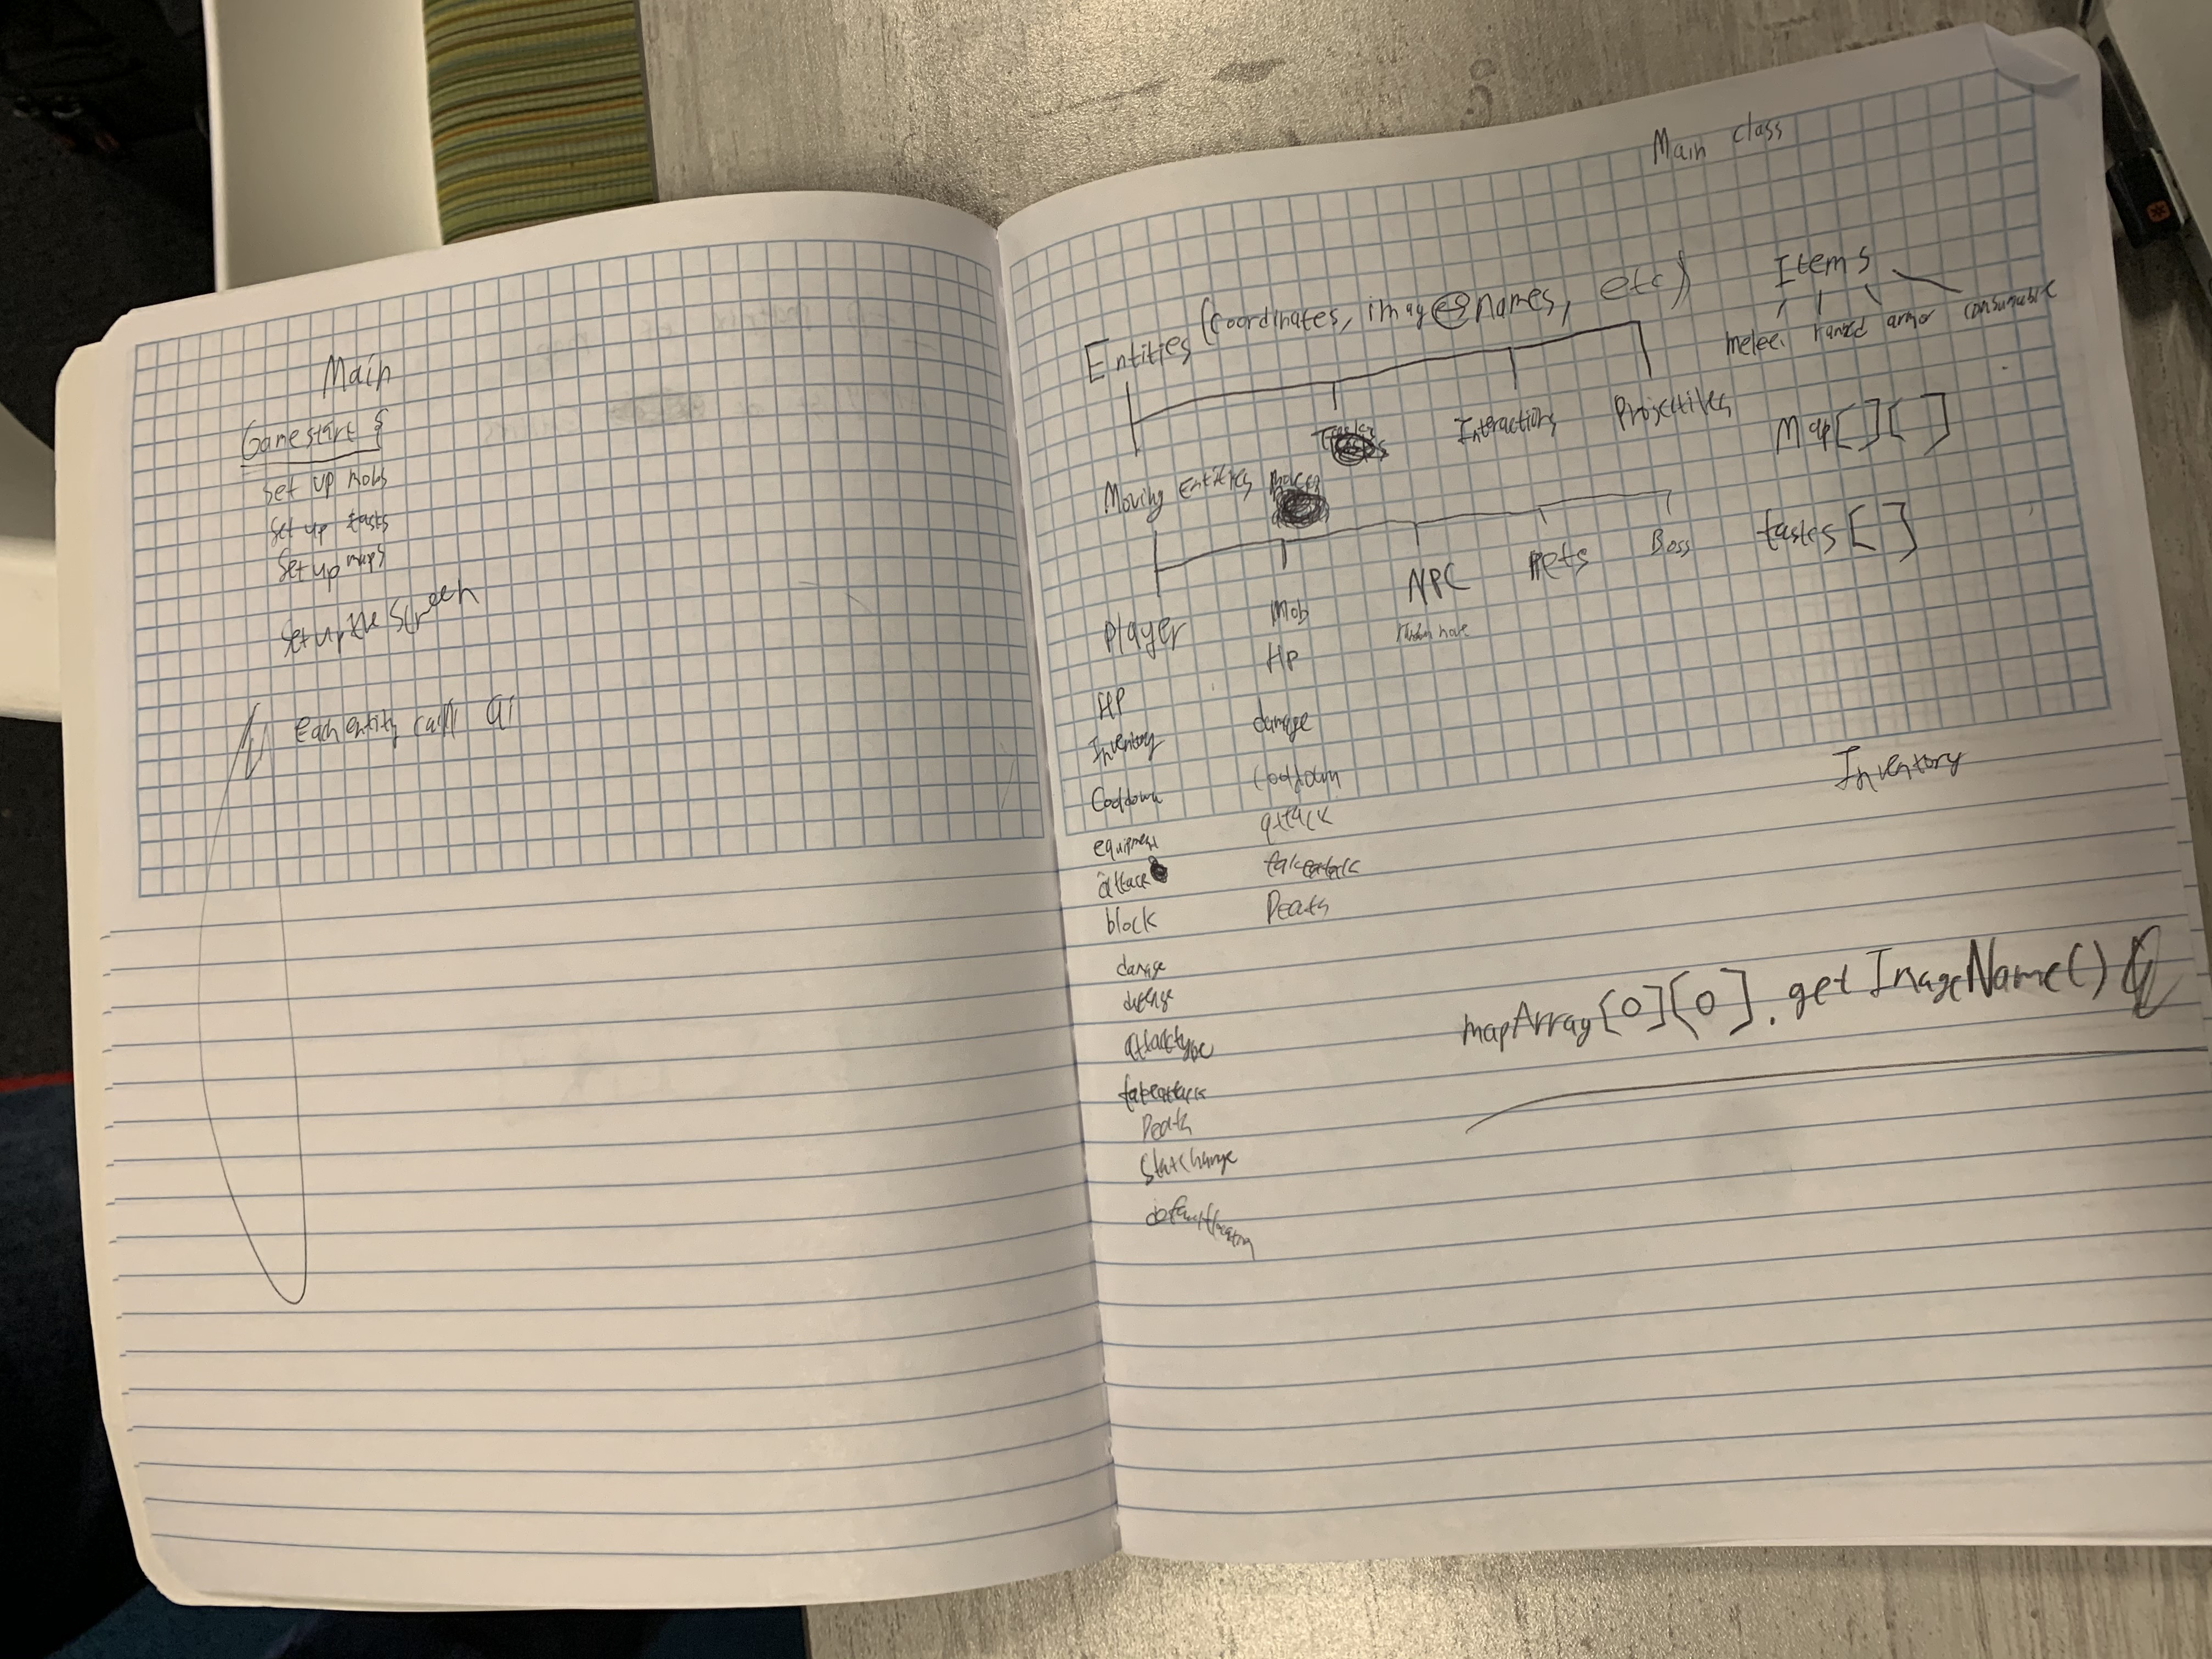 Main
Gamestart {
Set up mobs
Set up tasks
Set up maps
Set up the Screen
each entity calls ai
Main class
Entities (coordinates, images names, etc)
Moving Entities
Interactions
Projectiles
Player
Mob
NPC
Pets
Boss
HP
Inventory
Cooldown
equipment
attack
block
damage
defense
attacktype
takeattack
Death
Statchange
HP
damage
Cooldown
attack
takeattack
Death
Items
melee ranged armor consumable
Map[][]
tastes[]
Inventory
mapArray[0][0].getImageName()